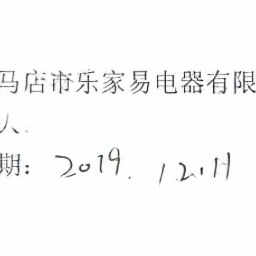 马店市乐家易电器有限
人
期: 2019.12.11